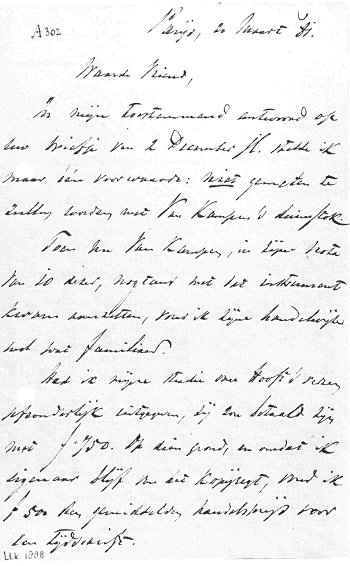 A 302
Parijs, 20 Maart 81.
Waarde Vriend,
In mijn toestemmend antwoord op
uw briefje van 2 December jl. stelde ik
maar één voorwaarde: niet gemeten te
zullen worden met Van Kampen's duimstok.
Toen nu Van Kampen, in zijne
van 10 dezer, nogtans met dat instrument
kwam aanzetten, vond ik zijne handelwijze
wat familiaar.
Had ik mijne studie over Hooft's
afzonderlijk uitgegeven, zij zou betaald zijn
met f 750. Op dien grond, en omdat ik
eigenaar blijf van het kopijregt, vond ik
f 500 den gemiddelden handelsprijs voor
een tijdschrift.
Ltk 1888